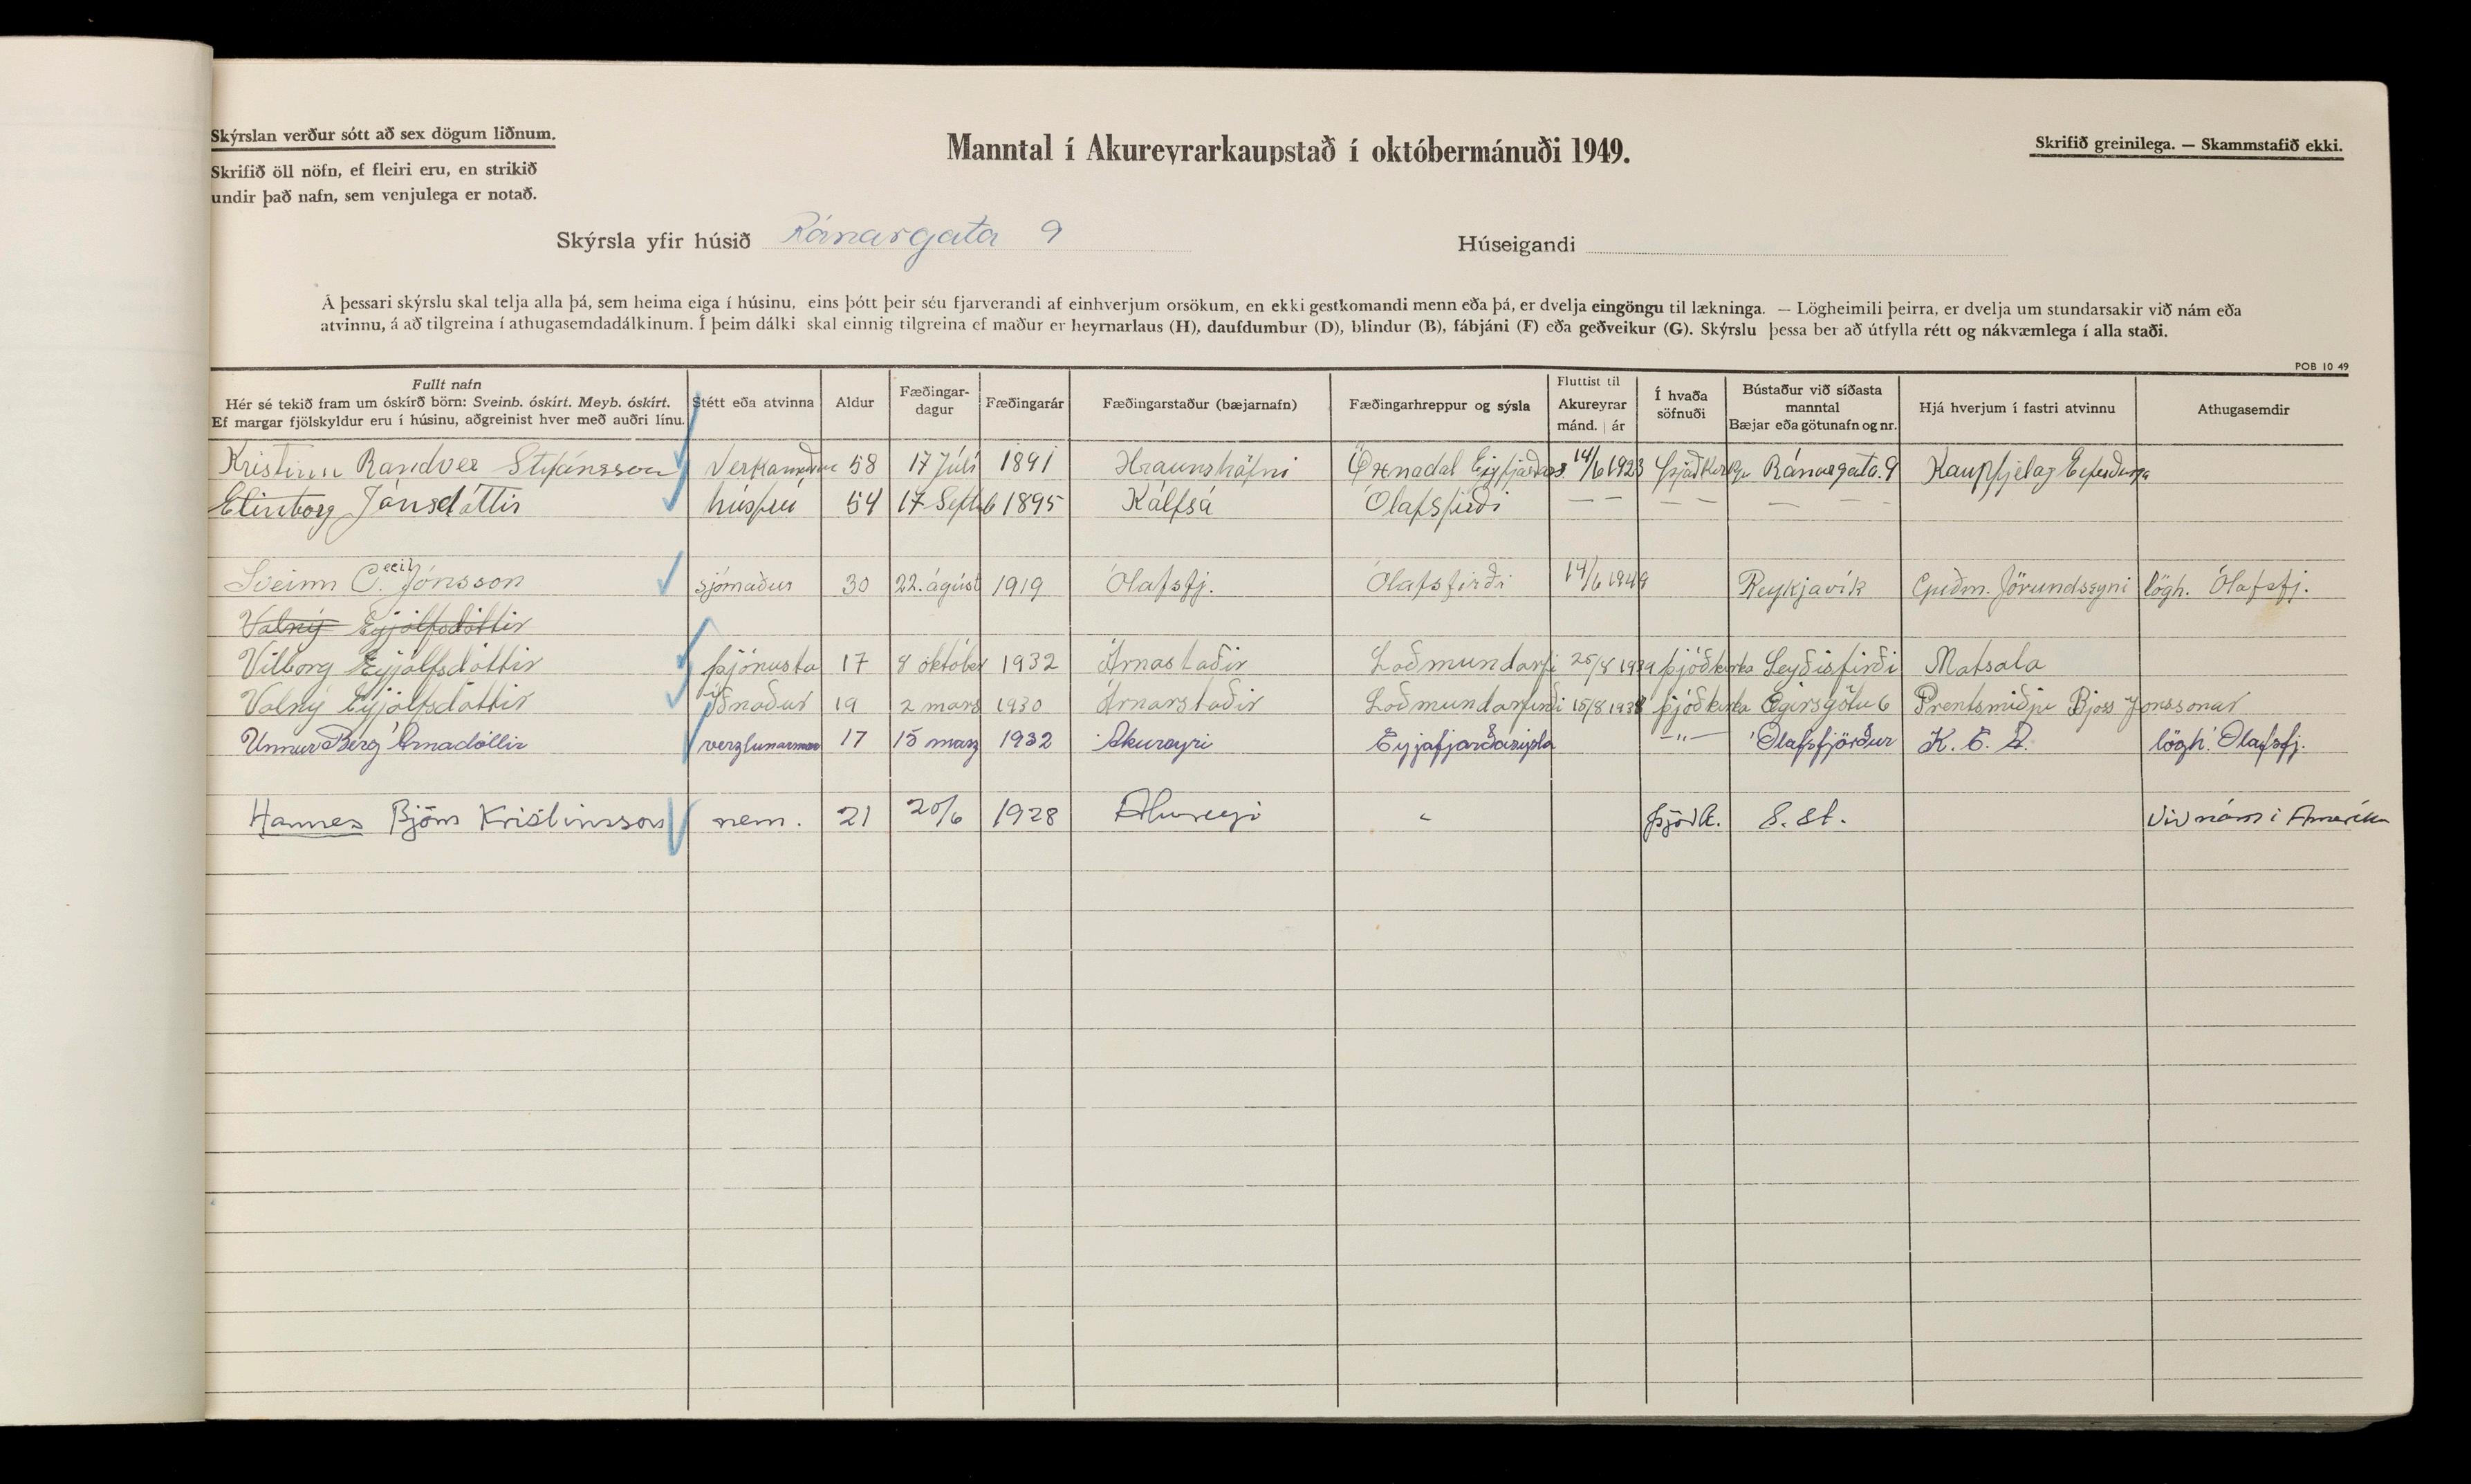 Skýrslan verður sótt að sex dögum liðnum.
Skrifið öll nöfn, ef fleiri eru, en strikið
undir það nafn, sem venjulega er notað.
Manntal í Akureyrarkaupstað í októbermánuði 1949.
Skrifið greinilega. — Skammstafið ekki.
Skýrsla yfir húsið Ránargata 9
Húseigandi
Á þessari skýrslu skal telja alla þá, sem heima eiga í húsinu, eins þótt þeir séu fjarverandi af einhverjum orsökum, en ekki gestkomandi menn eða þá, er dvelja eingöngu til lækninga. — Lögheimili þeirra, er dvelja um stundarsakir við nám eða
atvinnu, á að tilgreina í athugasemdadálkinum. Í þeim dálki skal einnig tilgreina ef maður er heyrnarlaus (H), daufdumbur (D), blindur (B), fábjáni (F) eða geðveikur (G). Skýrslu þessa ber að útfylla rétt og nákvæmlega í alla staði.
POB 10 49
Fullt nafn
Hér sé tekið fram um óskírð börn: Sveinb. óskírt. Meyb. óskírt.
Ef margar fjölskyldur eru í húsinu, aðgreinist hver með auðri línu.
Stétt eða atvinna
Aldur
Fæðingar-
dagur
Fæðingarár
Fæðingarstaður (bæjarnafn)
Fæðingarhreppur og sýsla
Fluttist til
Akureyrar
mánd. | ár
Í hvaða
söfnuði
Bústaður við síðasta
manntal
Bæjar eða götunafn og nr.
Hjá hverjum í fastri atvinnu
Athugasemdir
Kristinn Randver Stefánsson 58 17 Júlí 1891 Hraunshöfni Öxnadal 14/6 1923 Ránargata. 9 Kaupfjelag
Elinborg Jónsdóttir húsfrú 54 17 Septb 1895 Kálfsá Ólafsfirði — — — — — —
Sveinn C.ecil Jónsson sjómaður 30 22. ágúst 1919 Ólafsfj. Ólafsfirði 14/6 1949 Reykjavík Guðm. Jörundssyni lögh. Ólafsfj.
Valný Eyjólfsdóttir
Vilborg Eyjólfsdóttir þjónusta 17 8 október 1932 Árnastaðir Loðmundarfi 25/8 þjóðkirkja Seyðisfirði Matsala
Valný Eyjólfsdóttir iðnaður 19 2 mars 1930 Árnarstaðir Loðmundarfirði 15/8 1938 þjóðkirkja Ægirsgötu 6 Prentsmiðju Bjöss Jonssonar
Unnur Berg Árnadóttir verzlunarmær 17 15 marz 1932 Akureyri Eyjafjarðarsýsla —"— Ólafsfjörður K. E. A. lögh. Ólafsfj.
Hannes Björn Kristinsson nem. 21 20/6 1928 Akureyri " þjóðk. S. st. Við nám í Ameríku